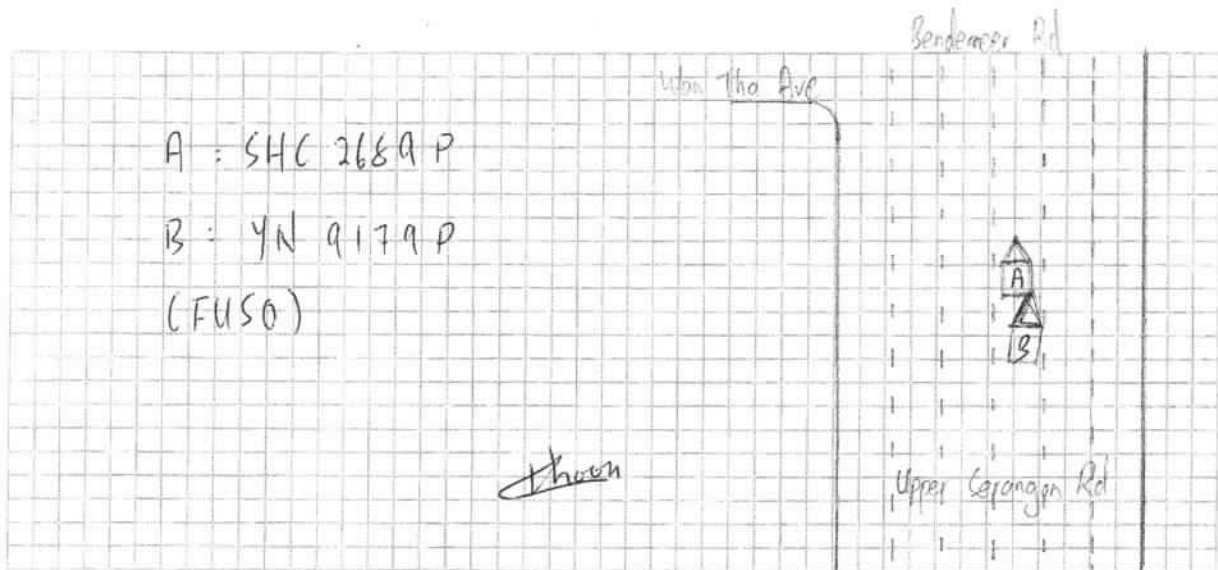 Bendemeer Rd
Wan Tho Ave
A : SHC 2689 P
B : YN 9179 P
(FUSO)
A
B
Thoon
Upper Serangoon Rd